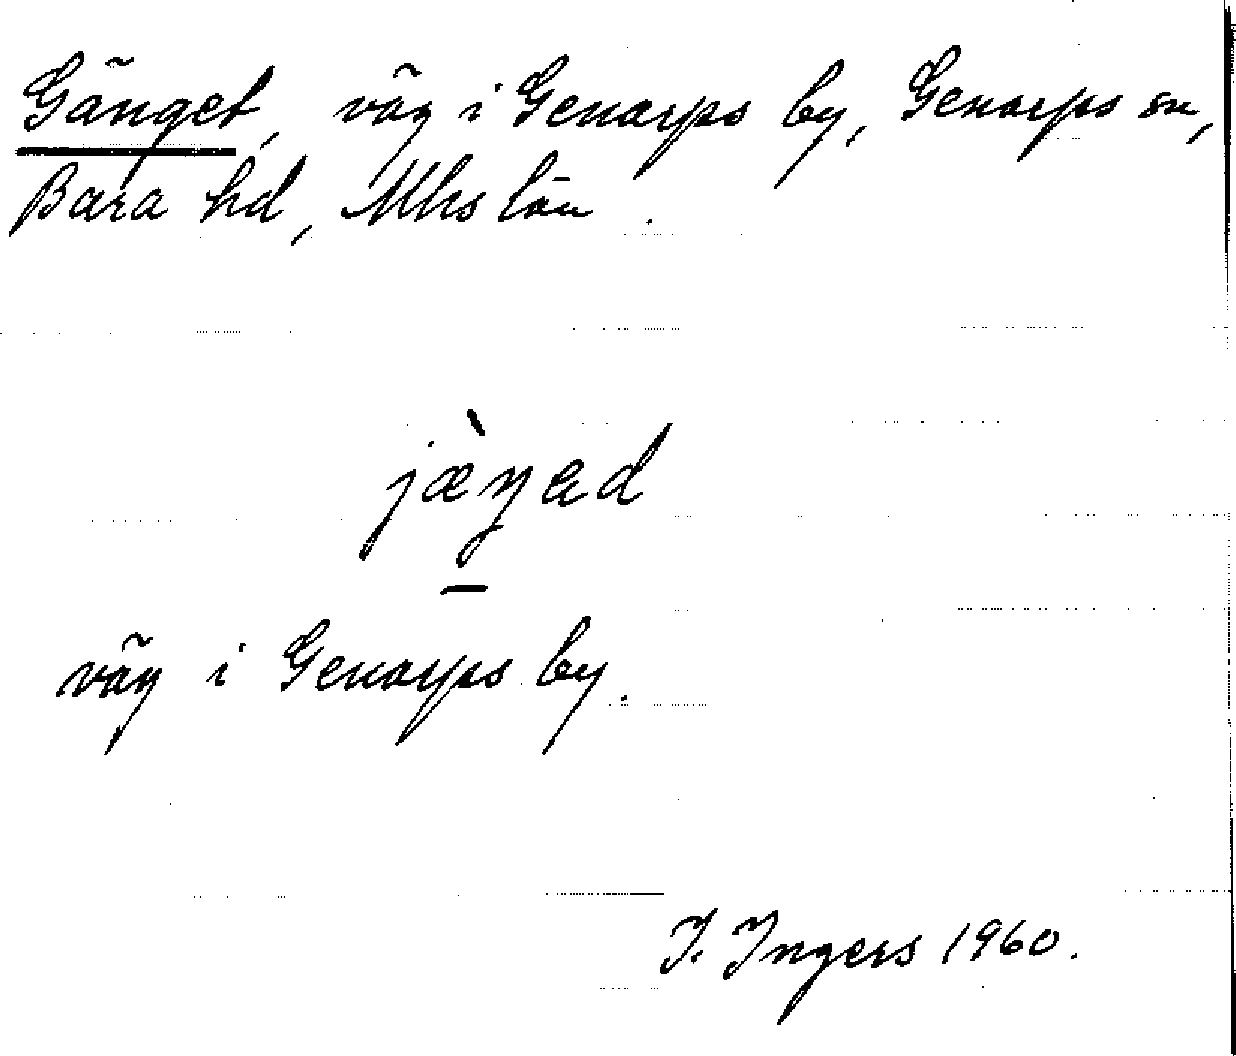 Gänget, väg i Genarps by, Genarps sn,
Bara hd, Mhs län.
jæ̀ŋəd
väg i Genarps by.
I. Ingers 1960.